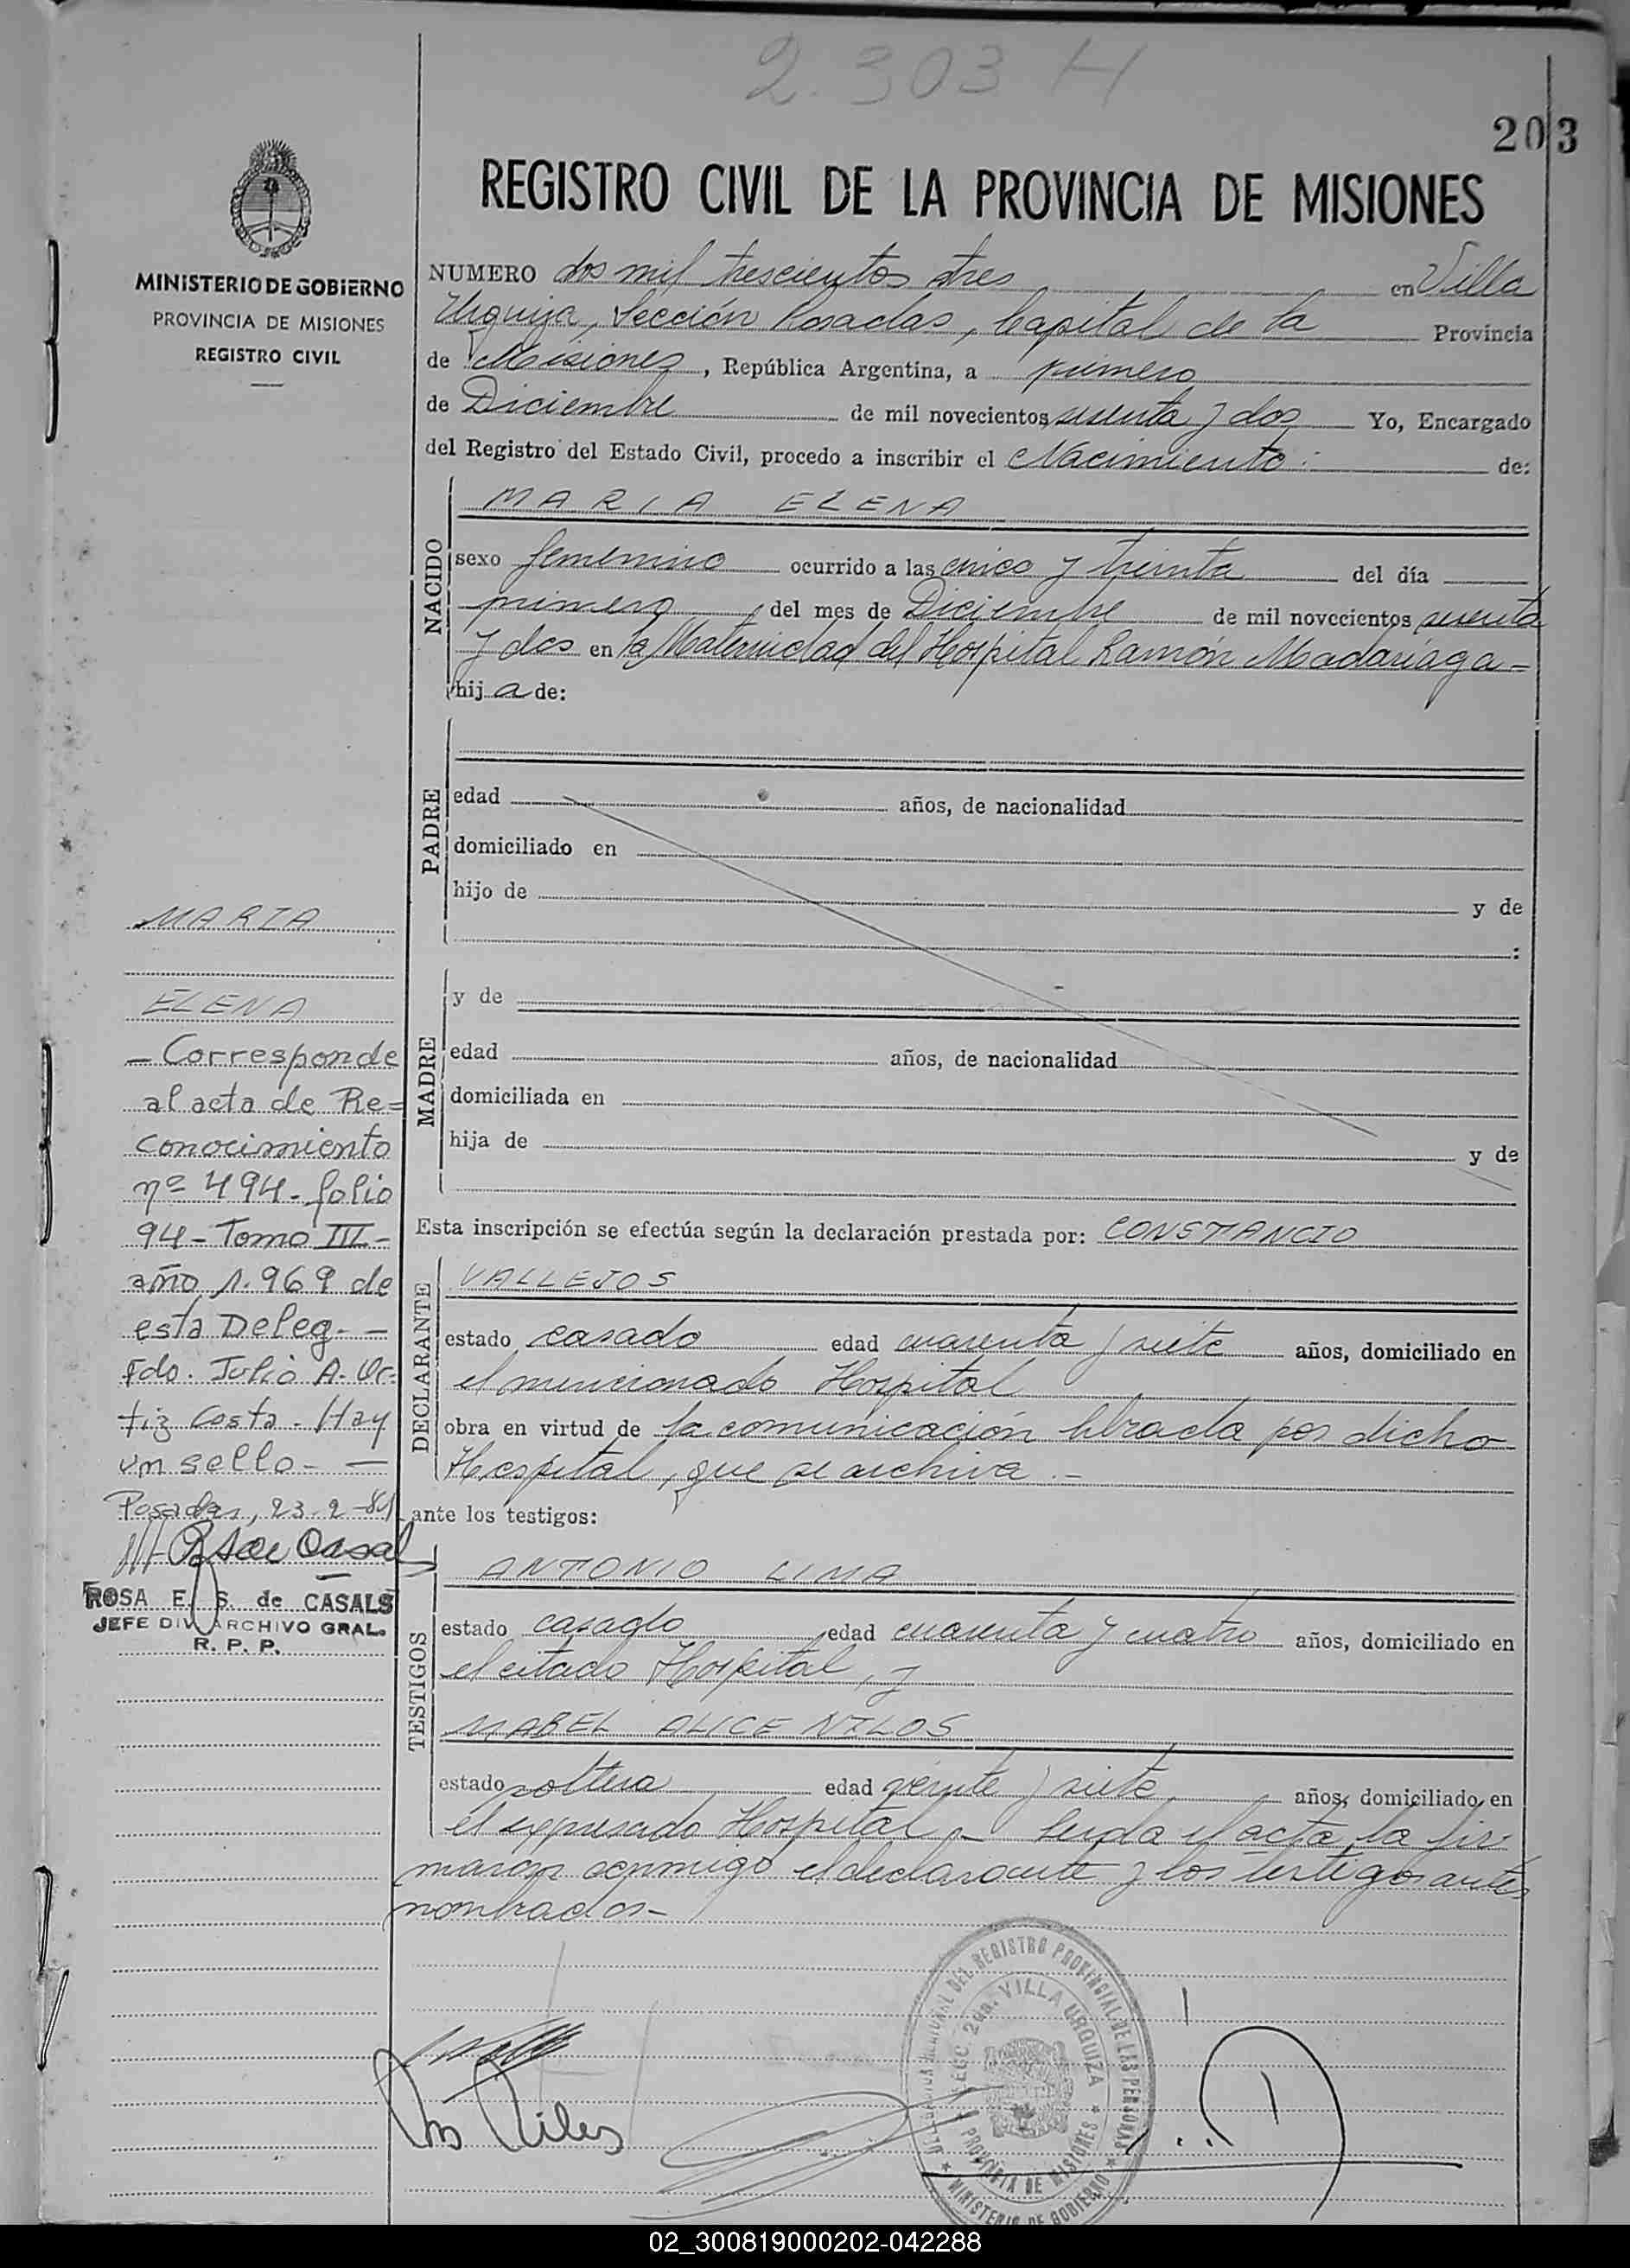 2.303 H
203
REGISTRO CIVIL DE LA PROVINCIA DE MISIONES
MINISTERIO DE GOBIERNO
PROVINCIA DE MISIONES
REGISTRO CIVIL
NUMERO dos mil trescientos tres en Villa
Urquiza, Sección Posadas, Capital de la Provincia
de Misiones, República Argentina, a primero
de Diciembre de mil novecientos sesenta y dos Yo, Encargado
del Registro del Estado Civil, procedo a inscribir el Nacimiento: de:
NACIDO
MARIA ELENA
sexo femenino ocurrido a las cinco y treinta del día
primero del mes de Diciembre de mil novecientos sesenta
y dos en la Maternidad del Hospital Ramón Madariaga-
hij a de:
PADRE
edad años, de nacionalidad
domiciliado en
hijo de y de
:
MADRE
y de
edad años, de nacionalidad
domiciliada en
hija de y de
Esta inscripción se efectúa según la declaración prestada por: CONSTANCIO
DECLARANTE
VALLEJOS
estado casado edad cuarenta y siete años, domiciliado en
el mencionado Hospital
obra en virtud de la comunicación librada por dicho
Hospital, que se archiva.-
ante los testigos:
TESTIGOS
ANTONIO LIMA
estado casado edad cuarenta y cuatro años, domiciliado en
el citado Hospital, y
MABEL ALICE NILOS
estado soltera edad veinte y siete años, domiciliado en
el expresado Hospital.- Leida el acta, la fir
maron conmigo el declarante y los testigos antes
nombrados-
MARIA
ELENA
- Corresponde
al acta de Re=
conocimiento
nº 494- folio
94- Tomo III-
año 1.969 de
esta Deleg.-
Fdo. Julio A. Or-
tiz Costa. Hay
un sello- -
Posadas, 23-2-81
ROSA E. S. de CASALS
JEFE DIV ARCHIVO GRAL.
R. P. P.
DEL REGISTRO PROVINCIAL DE LAS PERSONAS
SECC. 2da. VILLA URQUIZA
PROVINCIA DE MISIONES
MINISTERIO DE GOBIERNO
02_300819000202-042288